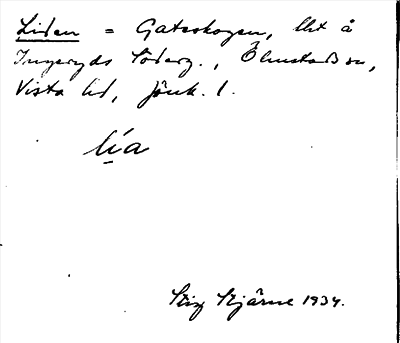 Liden = Gateskogen, lht å
Ingeryds Söderg., Ölmstads sn,
Vista hd, Jönk. l.
lía
Stig Stjärne 1934.